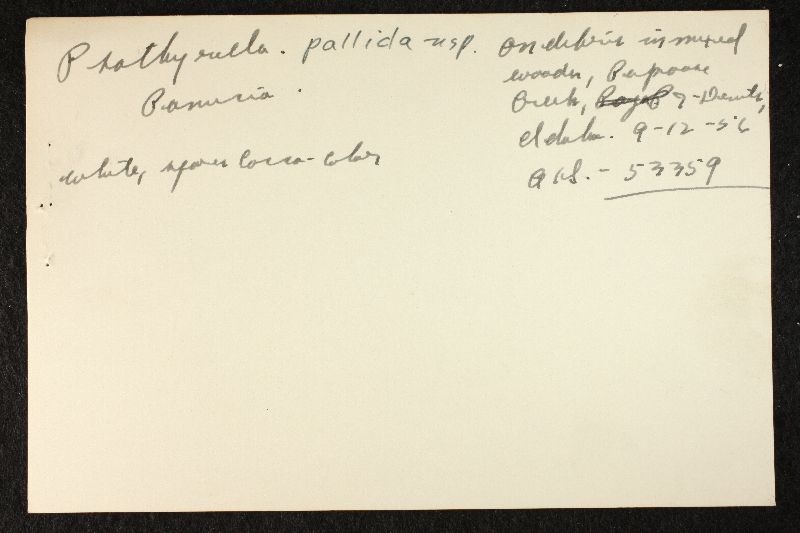 Psathyrella. pallida nsp.
Panucia.
white, spores cocoa-color
on debris in mixed
woods, Papoose
Creek, 7-Devils,
Idaho. 9-12-56
AHS. - 53359